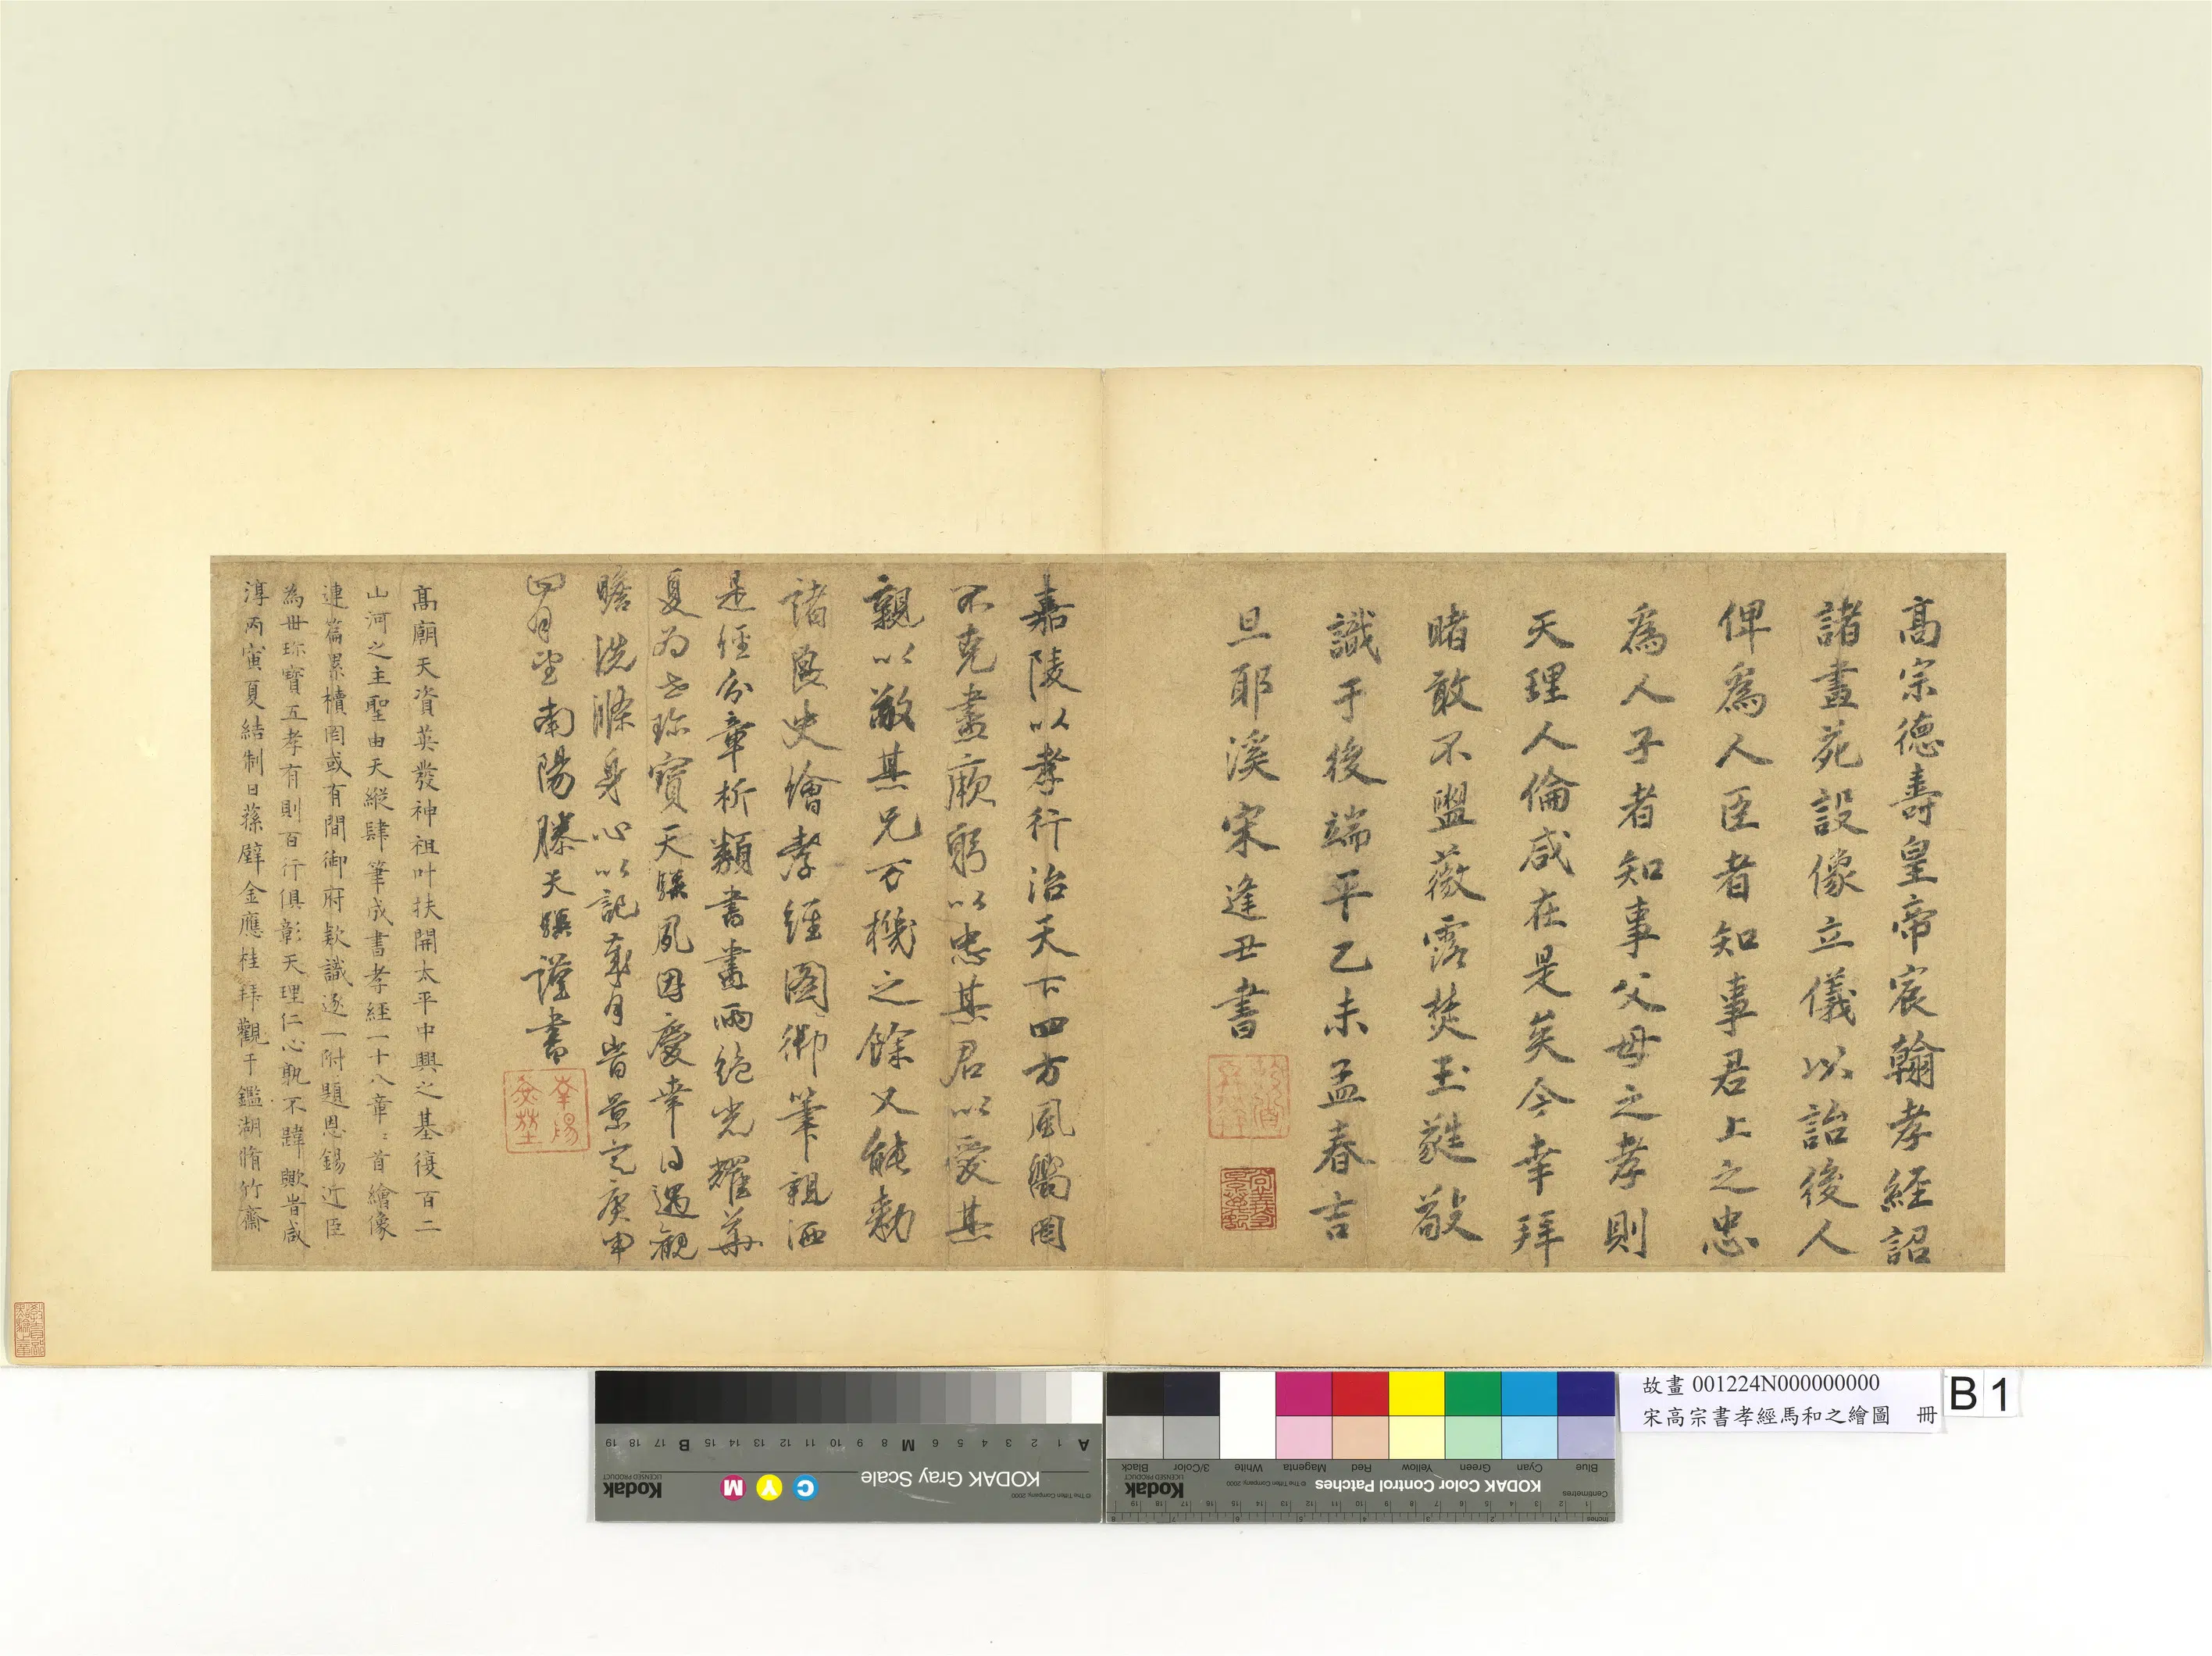 高宗德壽皇帝宸翰孝経詔
諸畫苑設像立儀以詒後人
俾爲人臣者知事君上之忠
爲人子者知事父母之孝則
天理人倫咸在是矣今幸拜
睹敢不盥薇露焚玉蕤敬
識于後端平乙未孟春吉
旦耶溪宋逢丑書
嘉陵以孝行治天下四方風嚮罔
不克盡厥躬以忠其君以愛其
親以敬其兄万機之餘又能勅
諸良史繪孝經圖御筆親洒
是經分章析類書畫兩絶光耀華
夏为世珍寶天騏夙因慶幸日遇観
瞻洗滌身心以記歲月峕景定庚申
四月望南陽滕天騏謹書
高廟天資英發神祖叶扶開太平中興之基復百二
山河之主聖由天縱肆筆成書孝経一十八章〻首繪像
連篇累櫝罔或有間御府欵識逐一附題恩錫近臣
為世珍寶五孝有則百行俱彰天理仁心孰不韙歟峕咸
淳丙寅夏結制日蓀壁金應桂拜觀于鑑湖脩竹齋
故畫 001224N000000000
宋高宗書孝經馬和之繪圖 冊
B 1
A 1 2 3 4 5 6 M 8 9 10 11 12 13 14 15 B 17 18 19
KODAK Gray Scale
© The Tiffen Company, 2000
C Y M
Kodak
LICENSED PRODUCT
Blue Cyan Green Yellow Red Magenta White 3/Color Black
KODAK Color Control Patches
© The Tiffen Company, 2000
Kodak
LICENSED PRODUCT
Centimetres
Inches